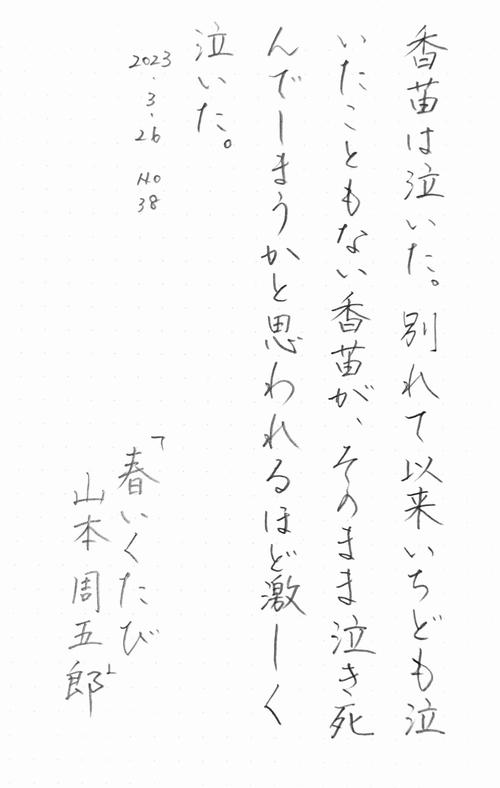 香苗は泣いた。別れて以来いちども泣
いたこともない香苗が、そのまま泣き死
んでしまうかと思われるほど激しく
泣いた。
2023.3.26 No 38
「春いくたび
山本周五郎」